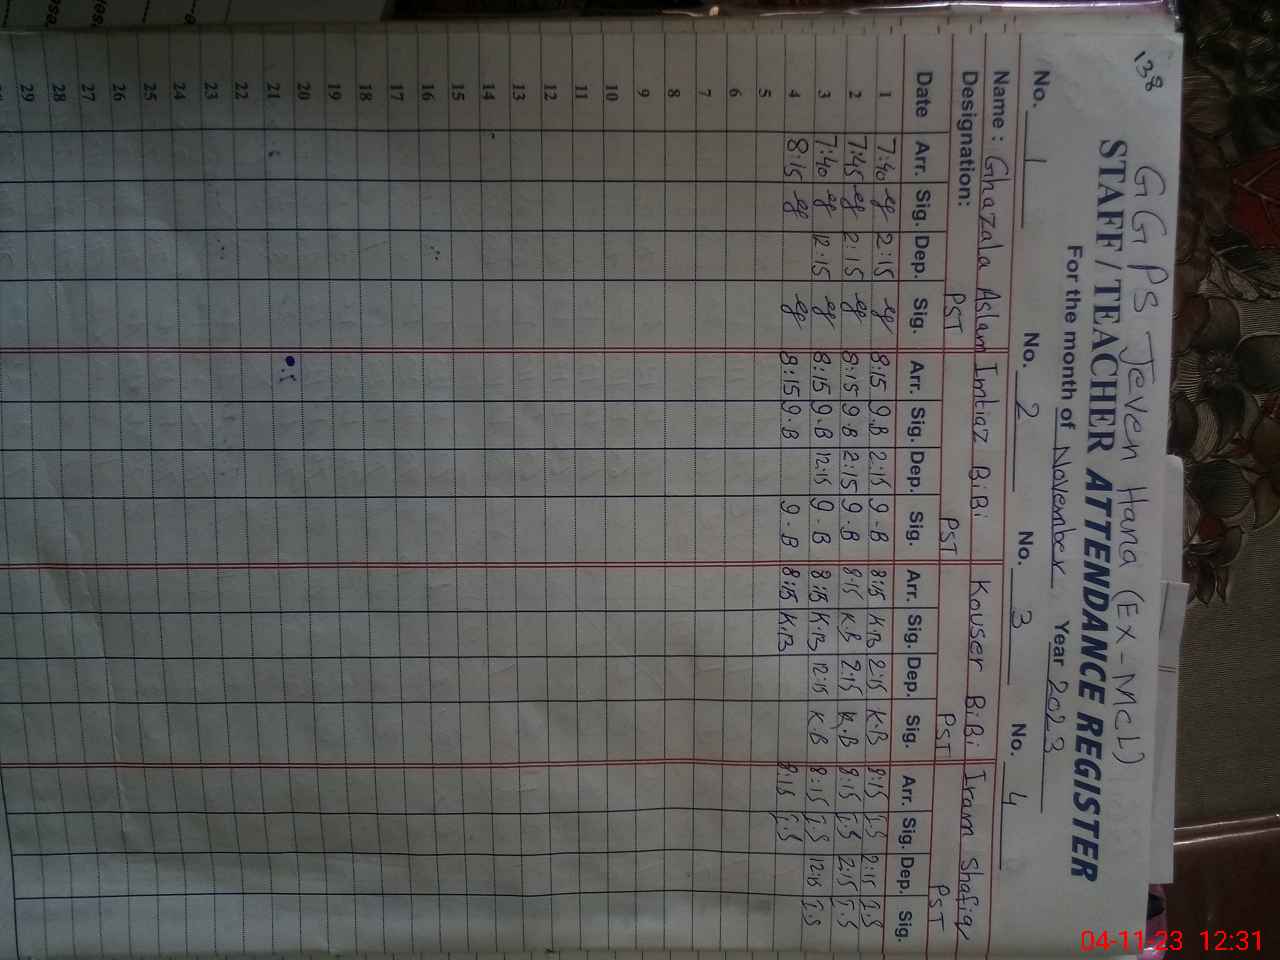 138
G G PS Jeven Hana (Ex-MCL)
STAFF / TEACHER ATTENDANCE REGISTER
For the month of November Year 2023
No. 1 No. 2 No. 3 No. 4
Name : Ghazala Aslam Imtiaz BiBi Kouser BiBi Iram Shafiq
Designation: PST PST PST PST
Date Arr. Sig. Dep. Sig. Arr. Sig. Dep. Sig. Arr. Sig. Dep. Sig. Arr. Sig. Dep. Sig.
1 7:40 2:15 8:15 9.B 2:15 9.B 8:15 K.B 2:15 K.B 8:15 I.S 2:15 I.S
2 7:45 2:15 8:15 9.B 2:15 9.B 8:15 K.B 2:15 K.B 8:15 I.S 2:15 I.S
3 7:40 12:15 8:15 9.B 12:15 9.B 8:15 K.B 12:15 K.B 8:15 I.S 12:15 I.S
4 8:15 8:15 9.B 9.B 8:15 K.B 8:15 I.S
5
6
7
8
9
10
11
12
13
14
15
16
17
18
19
20
21
22
23
24
25
26
27
28
29
04-11-23 12:31